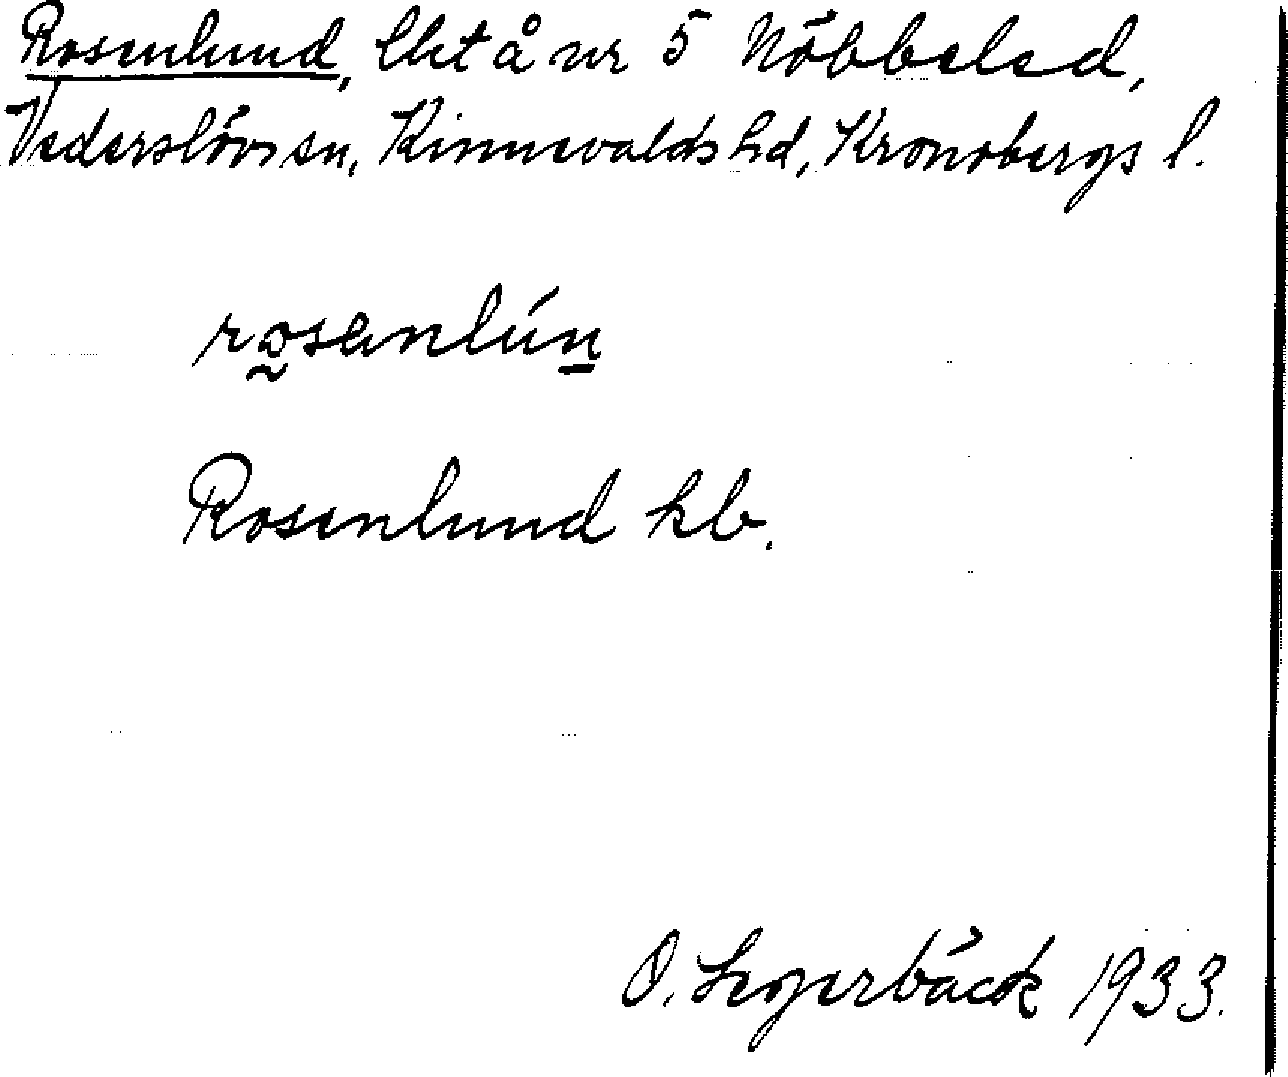 Rosenlund, lht å nr 5 Nöbbeled,
Vederslövs sn, Kinnevalds hd, Kronobergs l.
rosenlún
Rosenlund hb.
O. Segerbäck 1933.